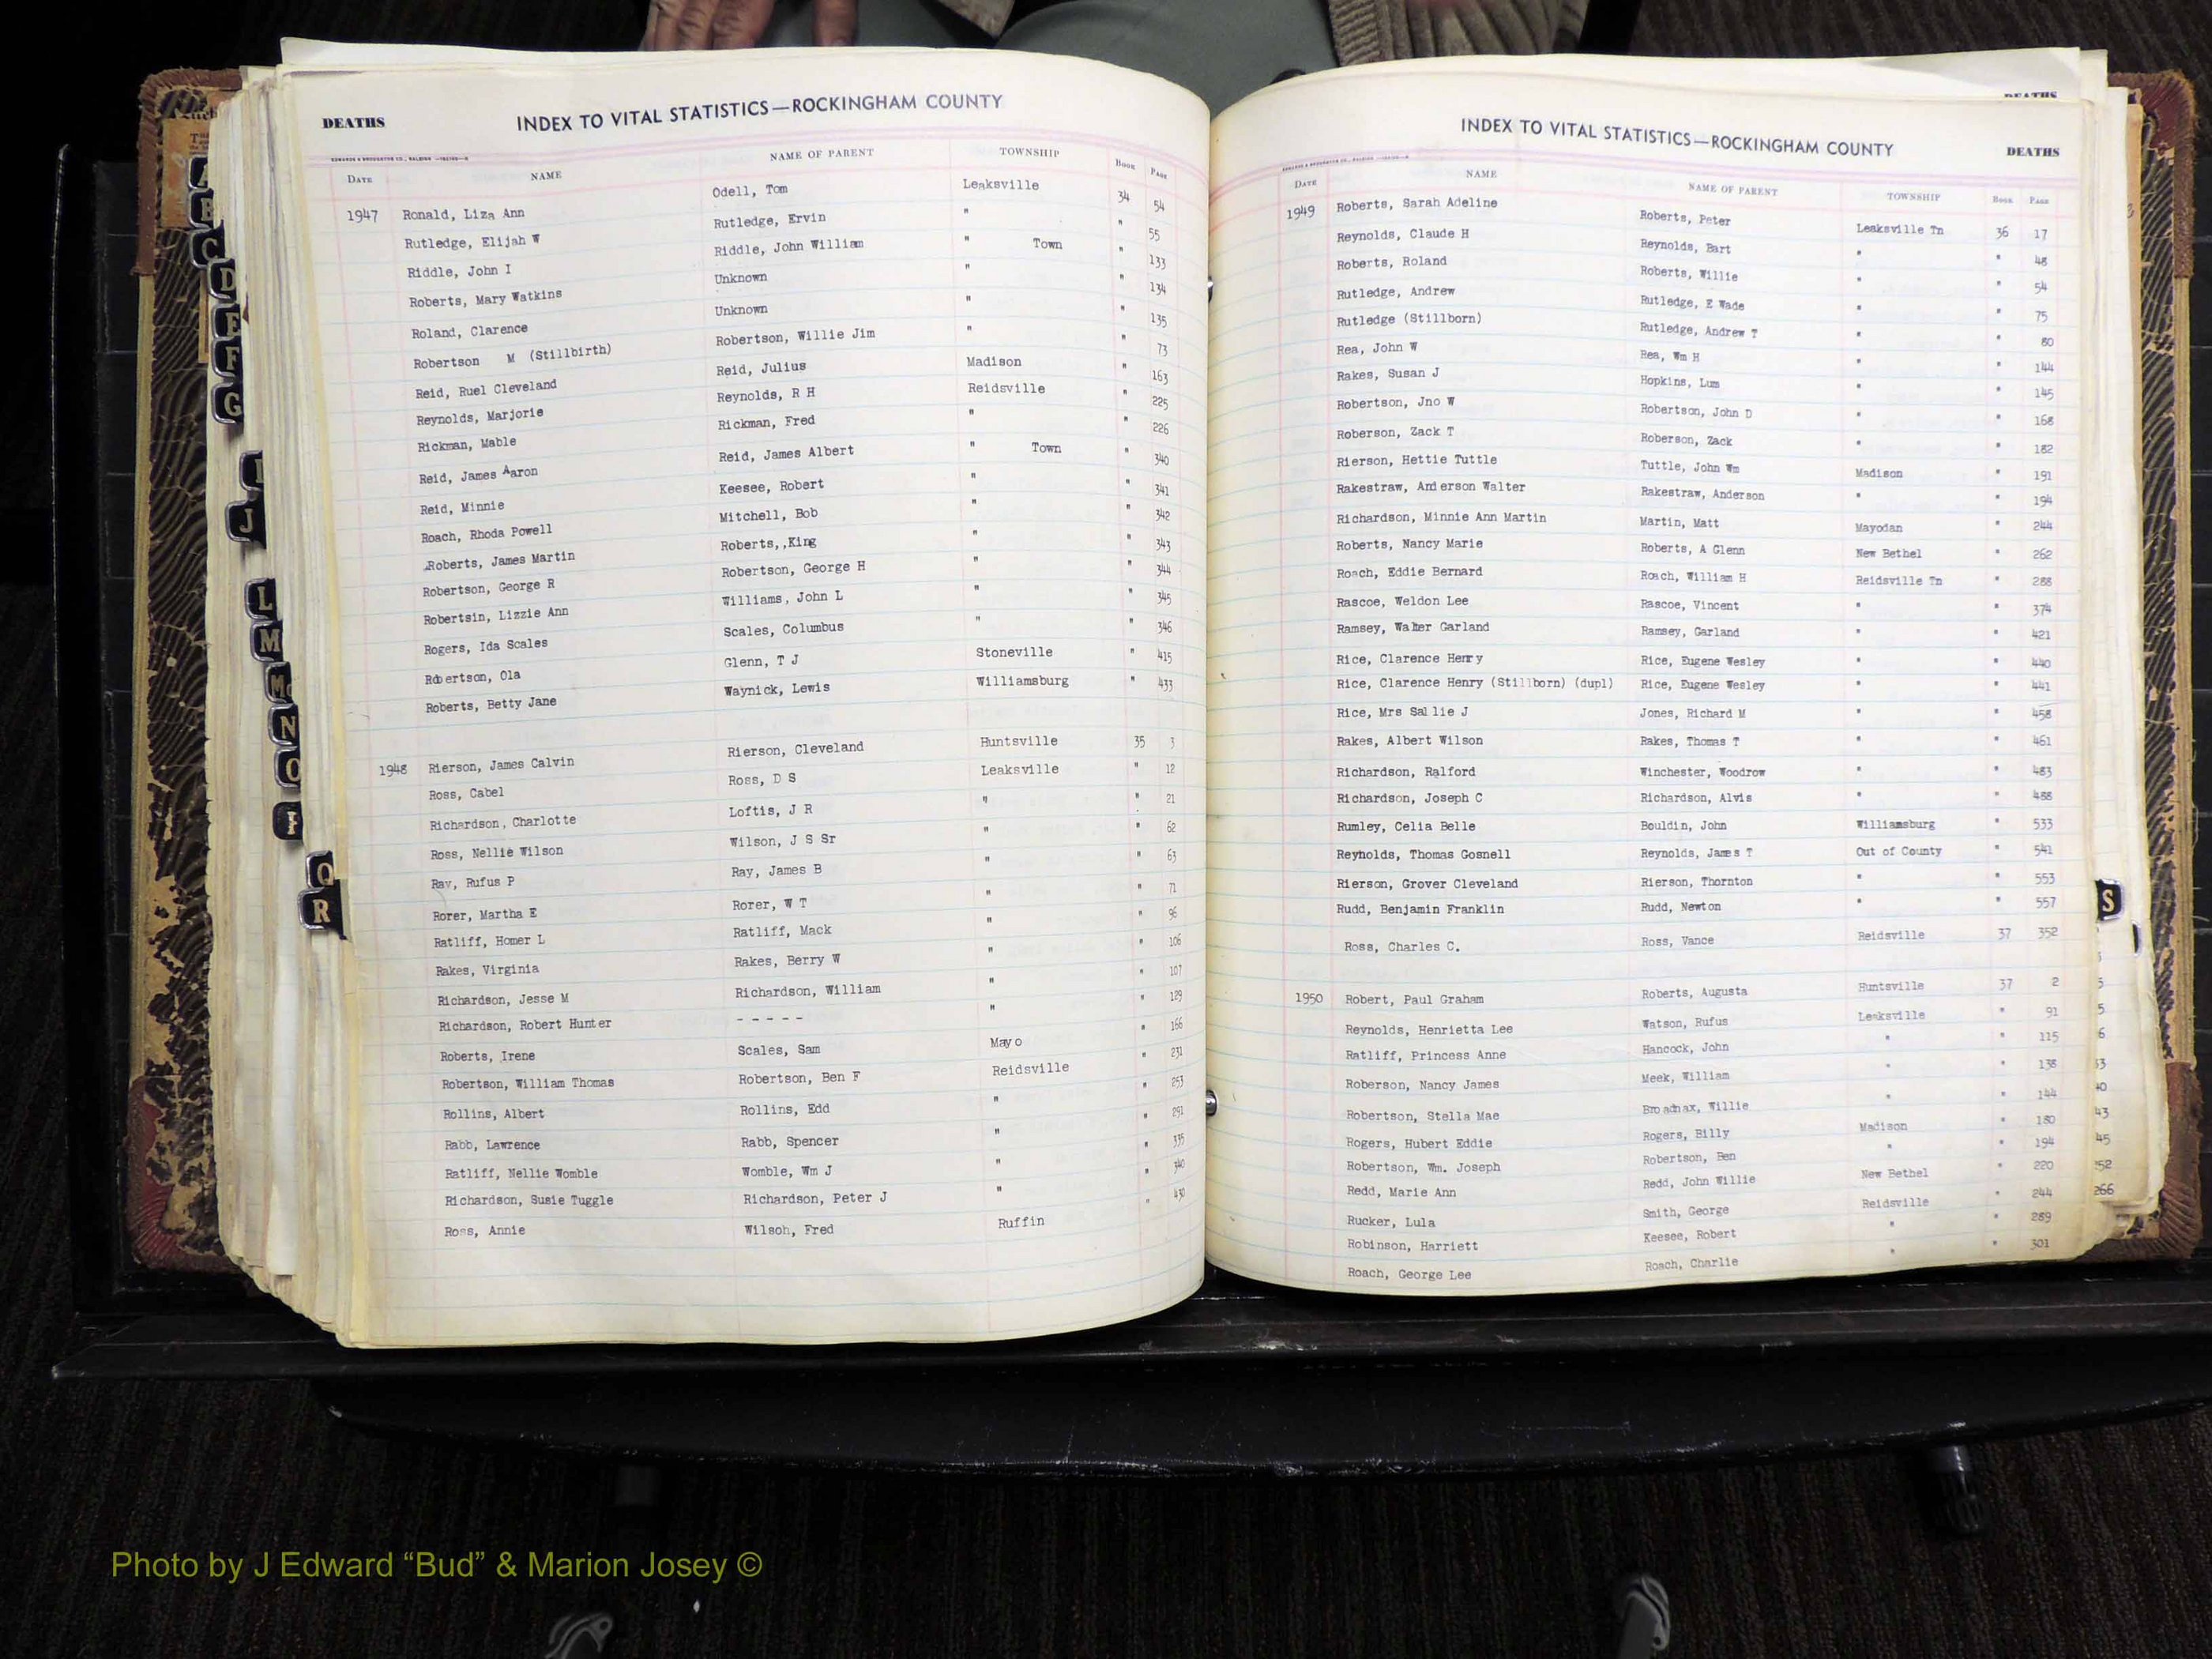 DEATHS INDEX TO VITAL STATISTICS—ROCKINGHAM COUNTY
EDWARDS & BROUGHTON CO., RALEIGH
DATE NAME NAME OF PARENT TOWNSHIP BOOK PAGE
1947 Ronald, Liza Ann Odell, Tom Leaksville 34 54
Rutledge, Elijah W Rutledge, Ervin " " 55
Riddle, John I Riddle, John William " Town " 133
Roberts, Mary Watkins Unknown " " 134
Roland, Clarence Unknown " " 135
Robertson M (Stillbirth) Robertson, Willie Jim " " 73
Reid, Ruel Cleveland Reid, Julius Madison " 163
Reynolds, Marjorie Reynolds, R H Reidsville " 225
Rickman, Mable Rickman, Fred " " 226
Reid, James Aaron Reid, James Albert " Town " 340
Reid, Minnie Keesee, Robert " " 341
Roach, Rhoda Powell Mitchell, Bob " " 342
Roberts, James Martin Roberts,,King " " 343
Robertson, George R Robertson, George H " " 344
Robertsin, Lizzie Ann Williams, John L " " 345
Rogers, Ida Scales Scales, Columbus " " 346
Robertson, Ola Glenn, T J Stoneville " 415
Roberts, Betty Jane Waynick, Lewis Williamsburg " 433
1948 Rierson, James Calvin Rierson, Cleveland Huntsville 35 3
Ross, Cabel Ross, D S Leaksville " 12
Richardson, Charlotte Loftis, J R " " 21
Ross, Nellie Wilson Wilson, J S Sr " " 62
Ray, Rufus P Ray, James B " " 63
Rorer, Martha E Rorer, W T " " 71
Ratliff, Homer L Ratliff, Mack " " 96
Rakes, Virginia Rakes, Berry W " " 106
Richardson, Jesse M Richardson, William " " 107
Richardson, Robert Hunter - - - - - " " 129
Roberts, Irene Scales, Sam Mayo " 166
Robertson, William Thomas Robertson, Ben F Reidsville " 231
Rollins, Albert Rollins, Edd " " 253
Rabb, Lawrence Rabb, Spencer " " 291
Ratliff, Nellie Womble Womble, Wm J " " 335
Richardson, Susie Tuggle Richardson, Peter J " " 340
Ross, Annie Wilson, Fred Ruffin " 430
A
B
C
D
E
F
G
I
J
L
M
Mc
N
O
Q
R
DEATHS
INDEX TO VITAL STATISTICS—ROCKINGHAM COUNTY DEATHS
DATE NAME NAME OF PARENT TOWNSHIP BOOK PAGE
1949 Roberts, Sarah Adeline Roberts, Peter Leaksville Tn 36 17
Reynolds, Claude H Reynolds, Bart " " 48
Roberts, Roland Roberts, Willie " " 54
Rutledge, Andrew Rutledge, E Wade " " 75
Rutledge (Stillborn) Rutledge, Andrew T " " 80
Rea, John W Rea, Wm H " " 144
Rakes, Susan J Hopkins, Lum " " 145
Robertson, Jno W Robertson, John D " " 168
Roberson, Zack T Roberson, Zack " " 182
Rierson, Hettie Tuttle Tuttle, John Wm Madison " 191
Rakestraw, Anderson Walter Rakestraw, Anderson " " 194
Richardson, Minnie Ann Martin Martin, Matt Mayodan " 244
Roberts, Nancy Marie Roberts, A Glenn New Bethel " 262
Roach, Eddie Bernard Roach, William H Reidsville Tn " 288
Rascoe, Weldon Lee Rascoe, Vincent " " 374
Ramsey, Walter Garland Ramsey, Garland " " 421
Rice, Clarence Henry Rice, Eugene Wesley " " 440
Rice, Clarence Henry (Stillborn) (dupl) Rice, Eugene Wesley " " 441
Rice, Mrs Sallie J Jones, Richard M " " 458
Rakes, Albert Wilson Rakes, Thomas T " " 461
Richardson, Ralford Winchester, Woodrow " " 483
Richardson, Joseph C Richardson, Alvis " " 488
Rumley, Celia Belle Bouldin, John Williamsburg " 533
Reynolds, Thomas Gosnell Reynolds, James T Out of County " 541
Rierson, Grover Cleveland Rierson, Thornton " " 553
Rudd, Benjamin Franklin Rudd, Newton " " 557
Ross, Charles C. Ross, Vance Reidsville 37 352
1950 Robert, Paul Graham Roberts, Augusta Huntsville 37 2
Reynolds, Henrietta Lee Watson, Rufus Leaksville " 91
Ratliff, Princess Anne Hancock, John " " 115
Roberson, Nancy James Meek, William " " 138
Robertson, Stella Mae Broadnax, Willie " " 144
Rogers, Hubert Eddie Rogers, Billy Madison " 180
Robertson, Wm. Joseph Robertson, Ben " " 194
Redd, Marie Ann Redd, John Willie New Bethel " 220
Rucker, Lula Smith, George Reidsville " 244
Robinson, Harriett Keesee, Robert " " 289
Roach, George Lee Roach, Charlie " " 301
S
266
Photo by J Edward “Bud” & Marion Josey ©